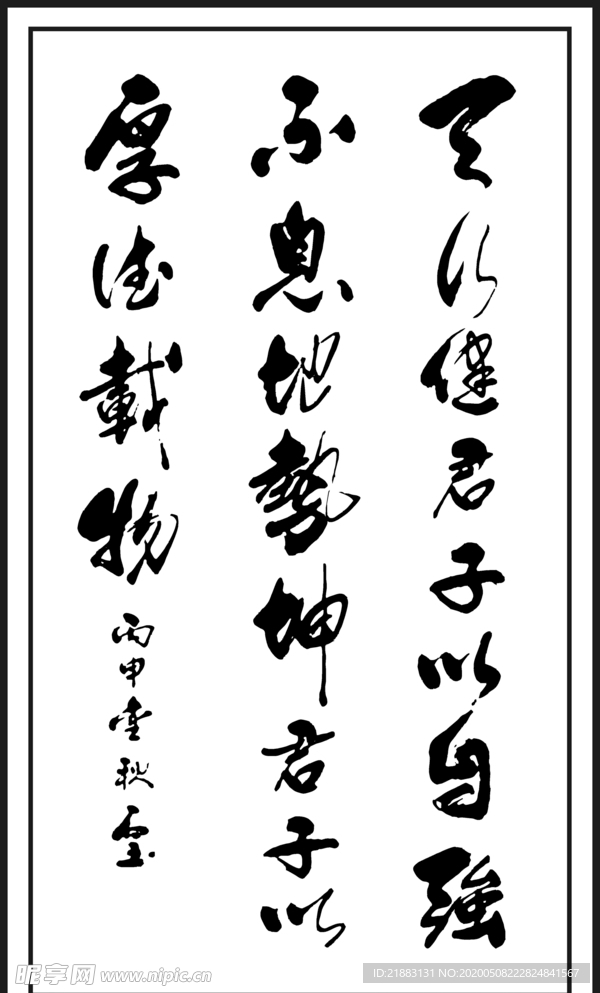 天行健君子以自強
不息地勢坤君子以
厚德載物
丙申
秋
昵享网 www.nipic.cn
ID:21883131 NO:20200508222824841567